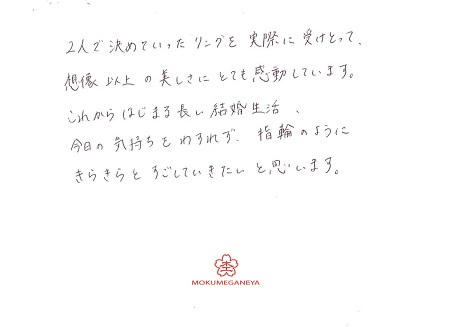 2人で決めていったリングを実際に受けとって、
想像以上の美しさにとても感動しています。
これからはじまる長い結婚生活、
今日の気持ちをわすれず、指輪のように
きらきらとすごしていきたいと思います。
MOKUMEGANEYA